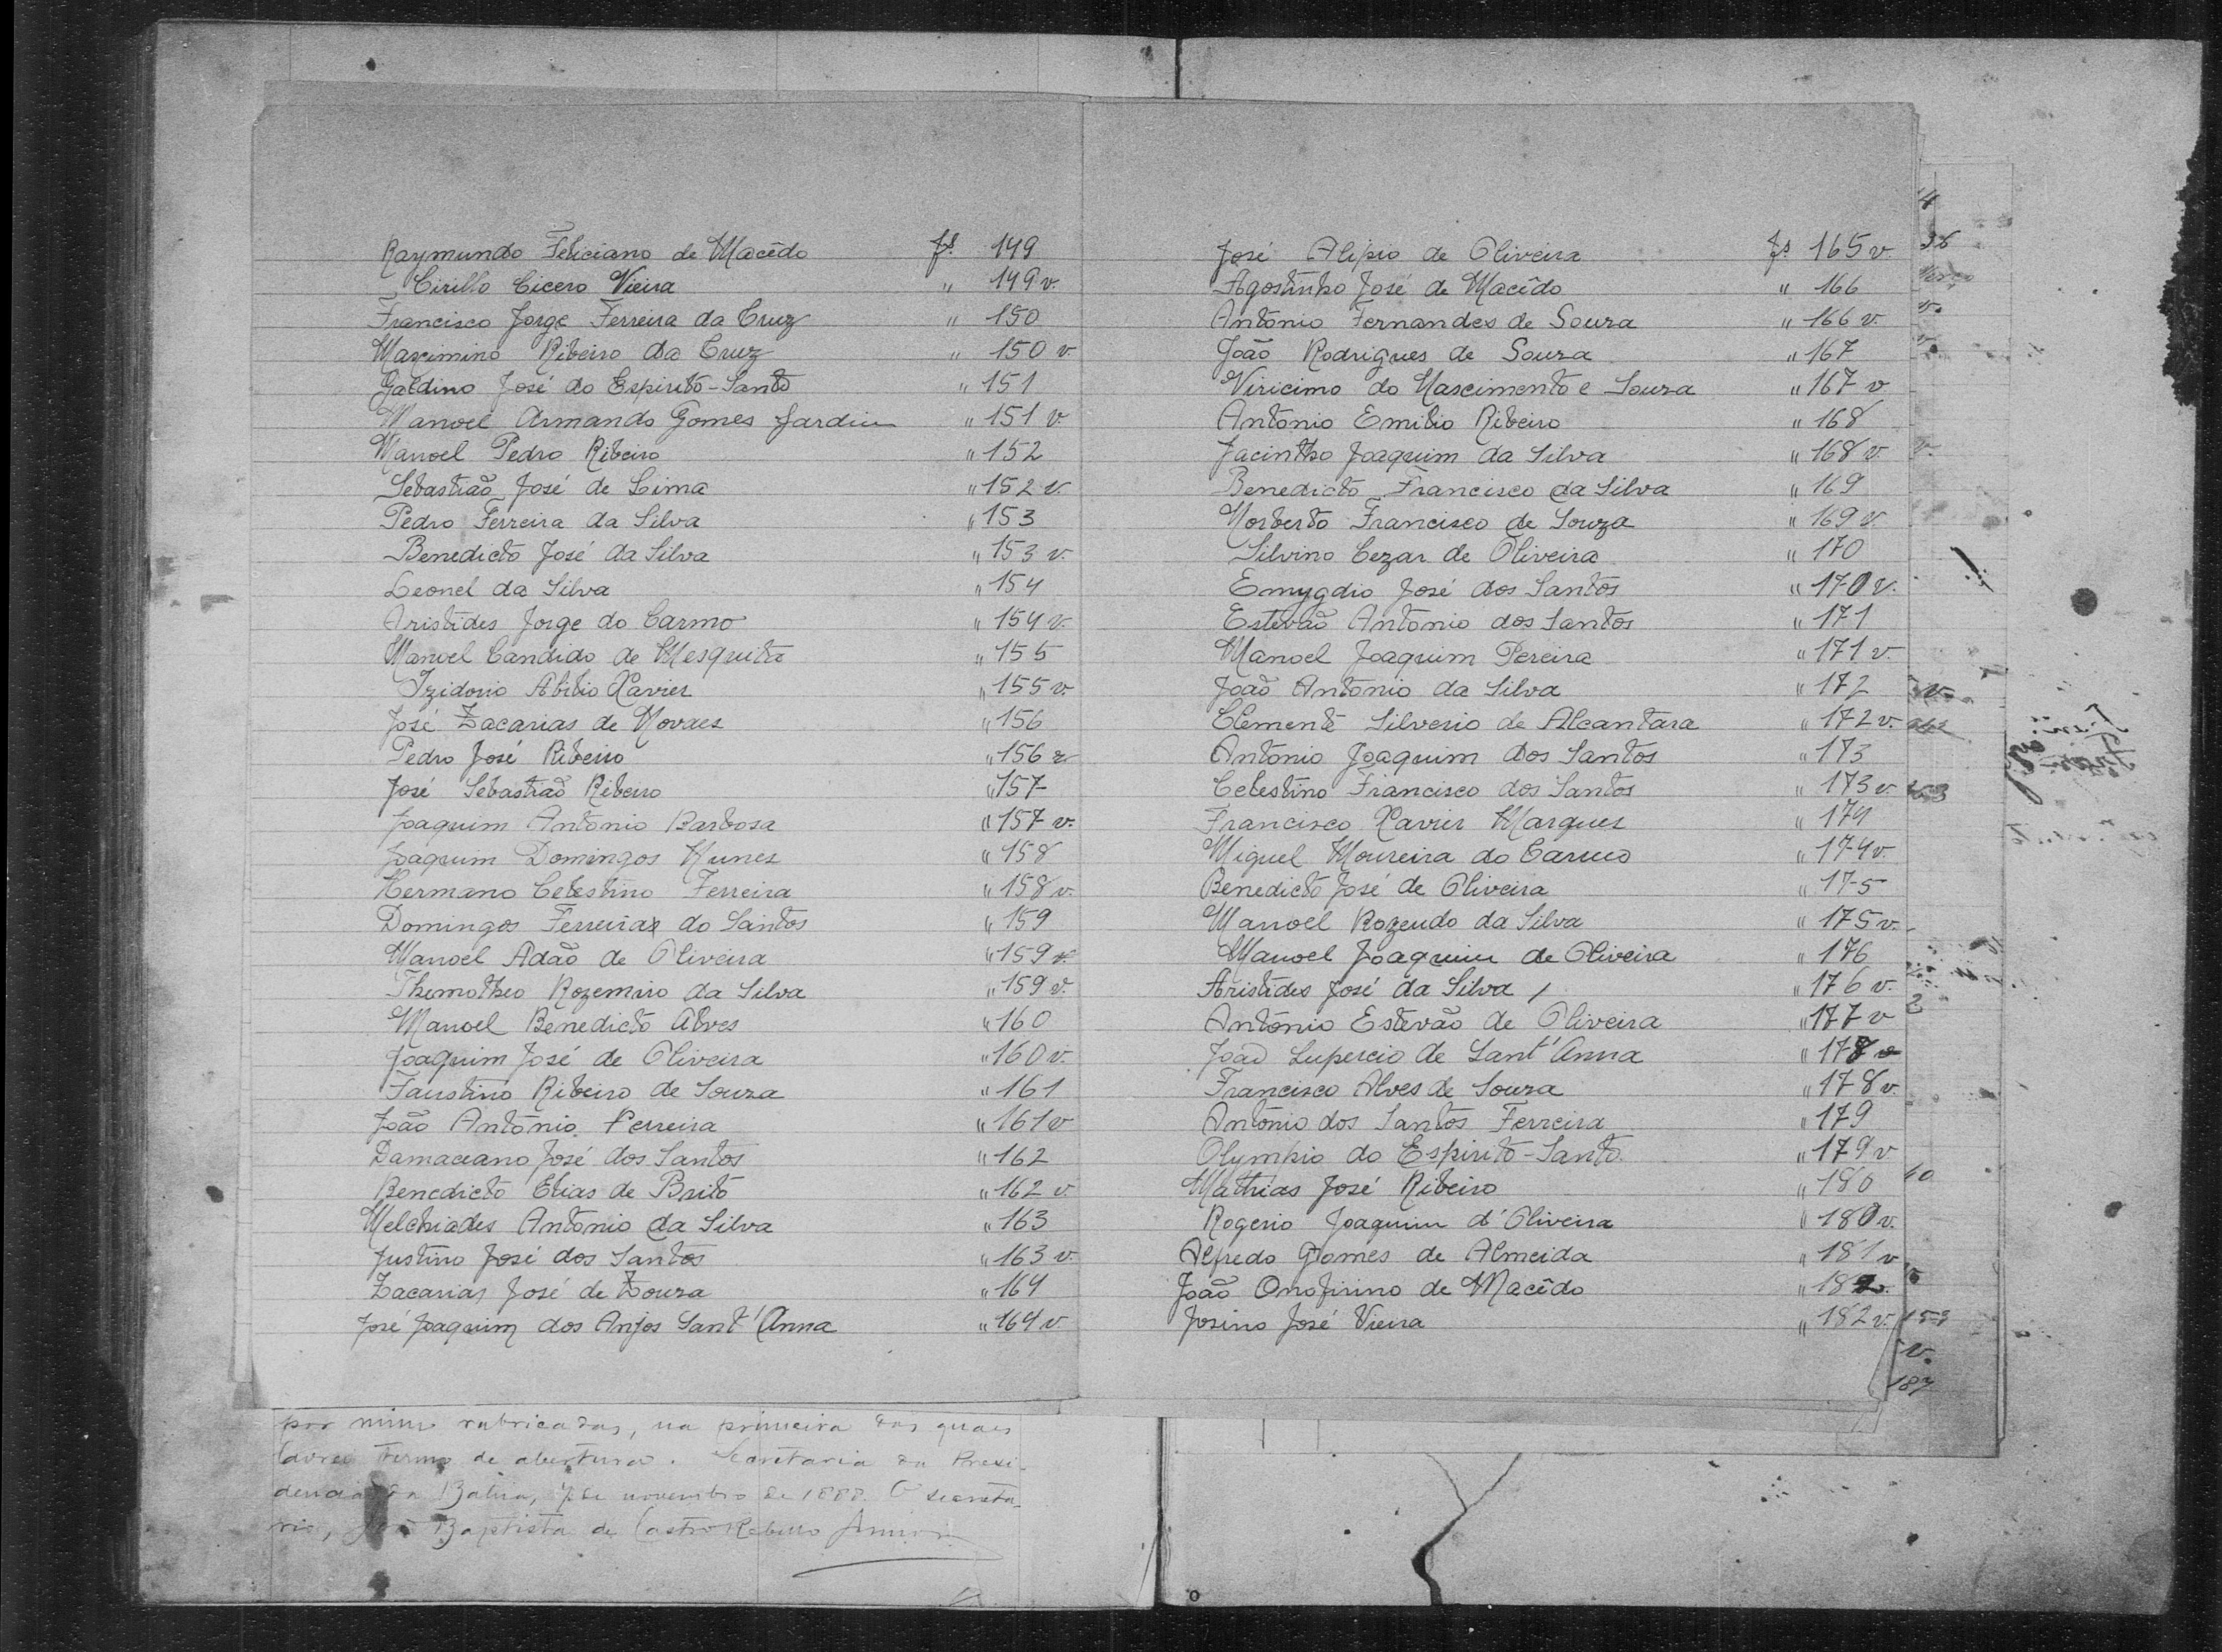 Raymundo Feliciano de Macêdo fs 149
Cirillo Cicero Vieira " 149 v.
Francisco Jorge Ferreira da Cruz " 150
Maximino Ribeiro da Cruz " 150 v.
Galdino José do Espirito-Santo " 151
Manoel Armando Gomes Jardim " 151 v.
Manoel Pedro Ribeiro " 152
Sebastião José de Lima " 152 v.
Pedro Ferreira da Silva " 153
Benedicto José da Silva " 153 v.
Leonel da Silva " 154
Aristides Jorge do Carmo " 154 v.
Manoel Candido de Mesquita " 155
Izidorio Abilio Xavier " 155 v
José Zacarias de Novaes " 156
Pedro José Ribeiro " 156 v
José Sebastião Ribeiro " 157
Joaquim Antonio Barbosa " 157 v.
Joaquim Domingos Nunes " 158
Hermano Celestino Ferreira " 158 v.
Domingos Ferreira do Santos " 159
Manoel Adão de Oliveira " 159 v.
Themotheo Rozemiro da Silva " 159 v.
Manoel Benedicto Alves " 160
Joaquim José de Oliveira " 160 v.
Faustino Ribeiro de Souza " 161
João Antonio Ferreira " 161 v
Damaceano José dos Santos " 162
Benedicto Elias de Brito " 162 v.
Melchiades Antonio da Silva " 163
Justino José dos Santos " 163 v.
Zacarias José de Zouza " 164
José Joaquim dos Anjos Sant'Anna " 164 v.
por mim rubricadas, na primeira das quaes
lavrei termo de abertura. Secretaria da Presi-
dencia da Bahia, 7 de novembro de 1888. O secreta-
rio, Baptista de Castro Rebello Junior
José Alipio de Oliveira fs 165 v.
Agostinho José de Macêdo " 166
Antonio Fernandes de Souza " 166 v.
João Rodrigues de Souza " 167
Viricimo do Nascimento e Souza " 167 v
Antonio Emilio Ribeiro " 168
Jacintho Joaquim da Silva " 168 v.
Benedicto Francisco da Silva " 169
Norberto Francisco de Souza " 169 v.
Silvino Cezar de Oliveira " 170
Emygdio José dos Santos " 170 v.
Estevão Antonio dos Santos " 171
Manoel Joaquim Pereira " 171 v.
João Antonio da Silva " 172
Clemente Silverio de Alcantara " 172 v.
Antonio Joaquim dos Santos " 173
Celestino Francisco dos Santos " 173 v.
Francisco Xavier Marques " 174
Miguel Moureira do Carmo " 174 v.
Benedicto José de Oliveira " 175
Manoel Rozendo da Silva " 175 v.
Manoel Joaquim de Oliveira " 176
Aristides José da Silva " 176 v.
Antonio Estevão de Oliveira " 177 v
João Lupercio de Sant'Anna " 178
Francisco Alves de Souza " 178 v.
Antonio dos Santos Ferreira " 179
Olympio do Espirito-Santo " 179 v
Mathias José Ribeiro " 180
Rogerio Joaquim d'Oliveira " 180 v.
Alfredo Gomes de Almeida " 181 v
João Onofirino de Macêdo " 182
Josino José Vieira " 182 v.
v.
187